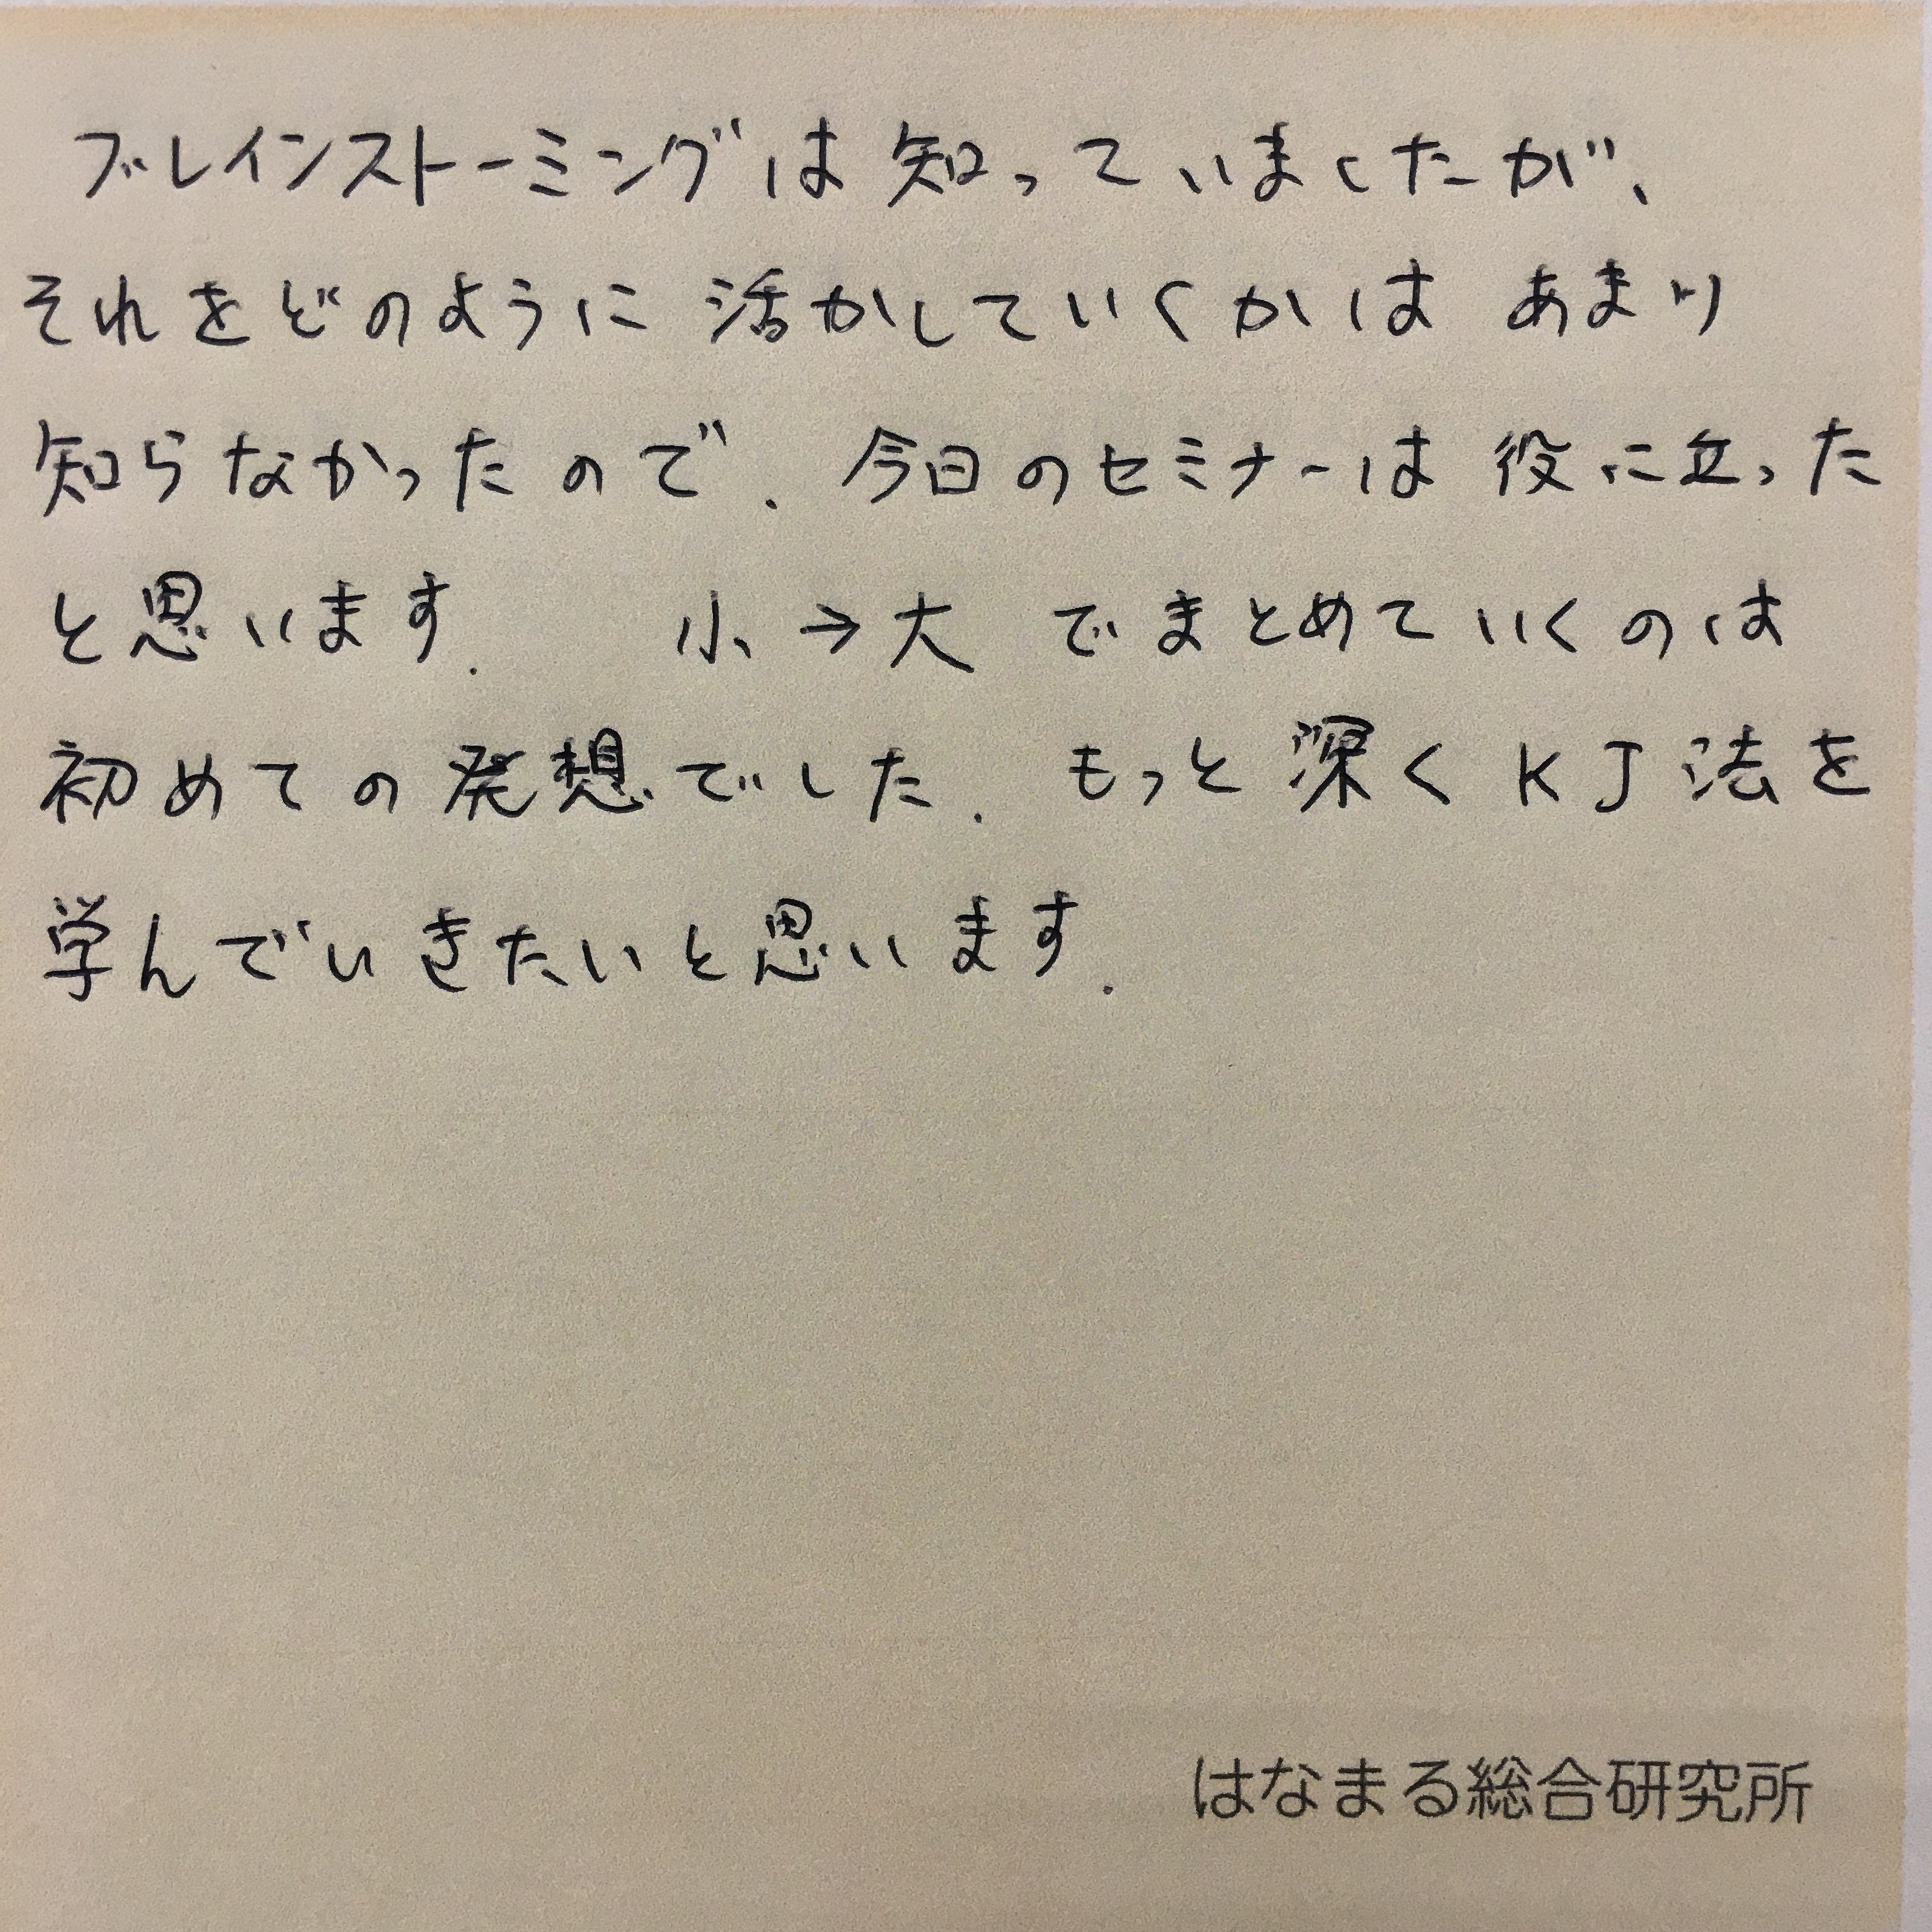 ブレインストーミングは知っていましたが、
それをどのように活かしていくかは あまり
知らなかったので、今日のセミナーは役に立った
と思います. 小→大 でまとめていくのは
初めての発想でした. もっと深くKJ法を
学んでいきたいと思います.
はなまる総合研究所